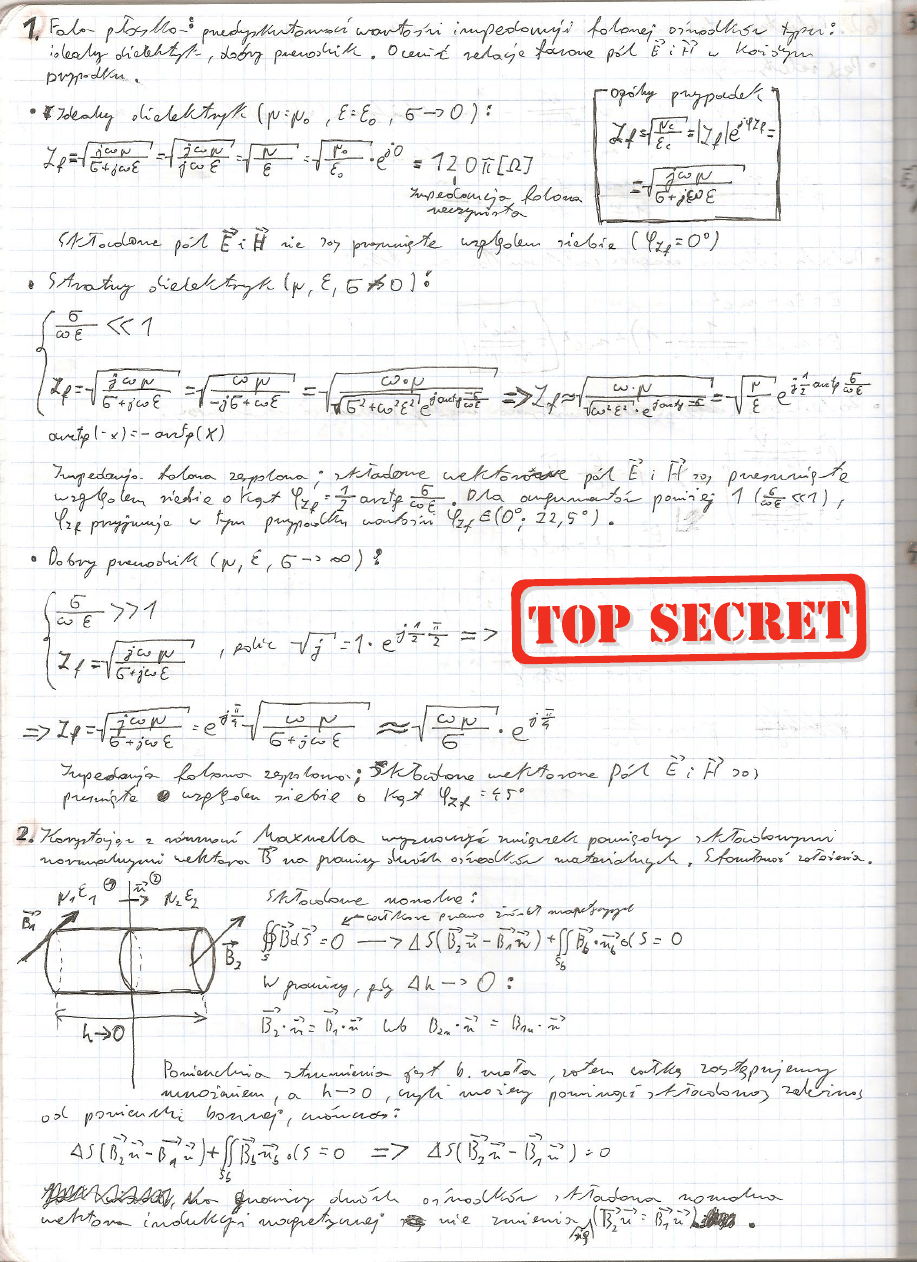 1. Fala płaska: przedyskutować wartości impedancji falowej ośrodków typu:
idealny dielektryk, dobry przewodnik. Ocenić relacje fazowe pól E⃗ i H⃗ w każdym
przypadku.
• Idealny dielektryk (μ=μ₀, ε=ε₀, σ→0):
Z_f=√(jωμ/(σ+jωε))=√(jωμ/(jωε))=√(μ/ε)=√(μ₀/ε₀)·e^(j0)=120π[Ω]
impedancja falowa
rzeczywista
ogólny przypadek
Z_f=√(μ_c/ε_c)=|Z_f|e^(jφ_Zf)=
=√(jωμ/(σ+jωε))
Składowe pól E⃗ i H⃗ nie są przesunięte względem siebie (φ_Zf=0°)
• Stratny dielektryk (μ, ε, σ≠0):
σ/(ωε) << 1
Z_f=√(jωμ/(σ+jωε))=√(ωμ/(-jσ+ωε))=√(ω·μ/(√(σ²+ω²ε²)e^(j arctg -σ/(ωε)))) => Z_f≈√(ω·μ/(√(ω²ε²)·e^(j arctg -σ/(ωε))))=√(μ/ε) e^(j½ arctg σ/(ωε))
arctg(-x)=-arctg(x)
Impedancja falowa zespolona; składowe wektorowe pól E⃗ i H⃗ są przesunięte
względem siebie o kąt φ_Zf=½ arctg σ/(ωε). Dla argumentów poniżej 1 (σ/(ωε)<<1),
φ_Zf przyjmuje w tym przypadku wartości φ_Zf∈(0°; 22,5°).
• Dobry przewodnik (μ, ε, σ→∞):
σ/(ωε) >> 1
Z_f=√(jωμ/(σ+jωε)), gdzie √j=1·e^(j½·π/2) =>
TOP SECRET
=> Z_f=√(jωμ/(σ+jωε))=e^(jπ/4)√(ωμ/(σ+jωε)) ≈ √(ωμ/σ)·e^(jπ/4)
Impedancja falowa zespolona; składowe wektorowe pól E⃗ i H⃗ są
przesunięte względem siebie o kąt φ_Zf=45°
2. Korzystając z równań Maxwella wyznaczyć związek pomiędzy składowymi
normalnymi wektora B⃗ na granicy dwóch ośrodków materialnych. Sformułować założenia.
μ₁ε₁ ① n⃗ ② μ₂ε₂
B⃗₁
B⃗₂
h→0
Składowe normalne:
całkowe prawo źródeł magnetycznych
∯_S B⃗dS⃗=0 → ΔS(B⃗₂n⃗-B⃗₁n⃗)+∬_Sb B⃗_b·n⃗_b dS=0
W granicy, gdy Δh→0:
B⃗₂·n⃗=B⃗₁·n⃗ lub B₂ₙ·n⃗=B₁ₙ·n⃗
Powierzchnia strumienia jest b. mała, zatem całkę zastępujemy
mnożeniem, a h→0, czyli możemy pominąć składową zależną
od powierzchni bocznej, wówczas:
ΔS(B⃗₂n⃗-B⃗₁n⃗)+∬_Sb B⃗_b n⃗_b dS=0 => ΔS(B⃗₂n⃗-B⃗₁n⃗)=0
Na granicy dwóch ośrodków składowa normalna
wektora indukcji magnetycznej nie zmienia się (B⃗₂n⃗=B⃗₁n⃗).